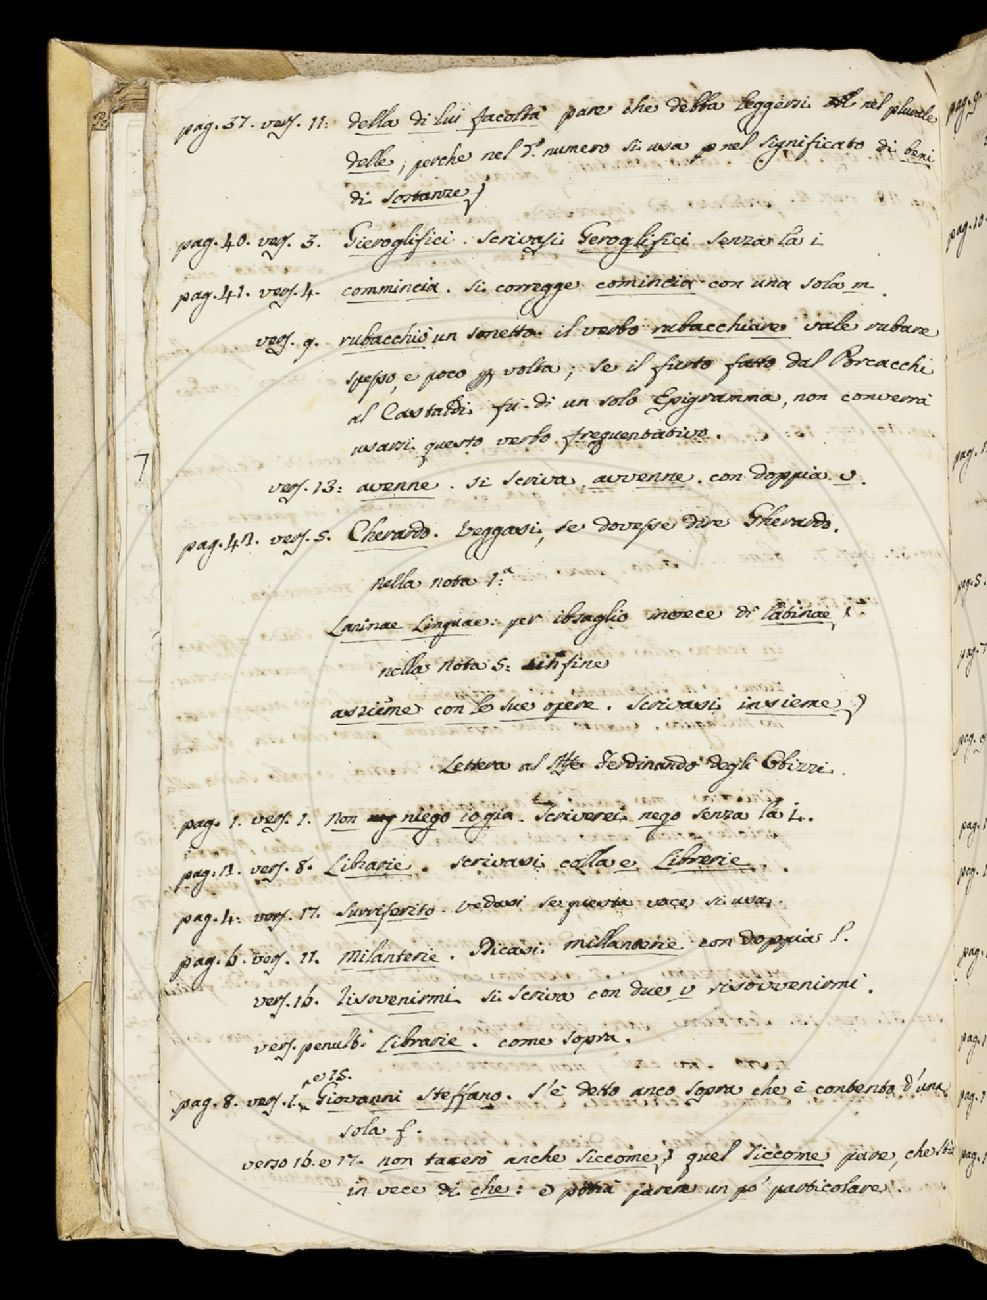 pag. 37. vers. 11: della di lui facoltà pare che debba leggersi nel plurale
delle, perche nel s.º numero si usa pnel significato di beni
di sostanze)
pag. 40. vers. 3. Gieroglifici. scrivasi Geroglifici senza la i
pag. 41. vers. 4. commincia. si corregge comincia con una sola m.
vers. 9. rubacchiò un sonetto. il verbo rubacchiare vale rubare
spesso, e poco p volta; se il furto fatto dal Porcacchi
al Castaldi fù di un solo Epigramma, non converrà
usarsi questo verbo frequentativo.
7
vers. 13: avenne. si scriva avvenne. con doppia v.
pag. 42. vers. 5. Cherardo. Veggasi, se dovesse dire Gherardo.
nella nota 1.ª
Laninae Linguae: per isbaglio invece di latinae)
nella nota 5: in fine
assieme con le sue opere. Scrivasi insieme)
Lettera al Mse Ferdinando degli Obizzi.
pag. 1. vers. 1. non niego io gia. Scriverei nego senza la i.
pag. 2. vers. 8. Librarie. scrivasi colla e Librerie.
pag. 4: vers. 17. Surriferito. vedasi se questa voce si usa.
pag. 6. vers. 11. milanterie. Dicasi millanterie con doppia l.
vers. 16. risovenirmi si scriva con due v risovvenirmi.
vers. penult: Librarie. come sopra.
e 15.
pag. 8. vers. 1. Giovanni Steffano. s'è detto anco sopra che è contento d'una
sola f.
verso 16. e 17. non tacerò anche siccome) quel siccome pare, che stia
in vece di che: e potrà parere un po' particolare.